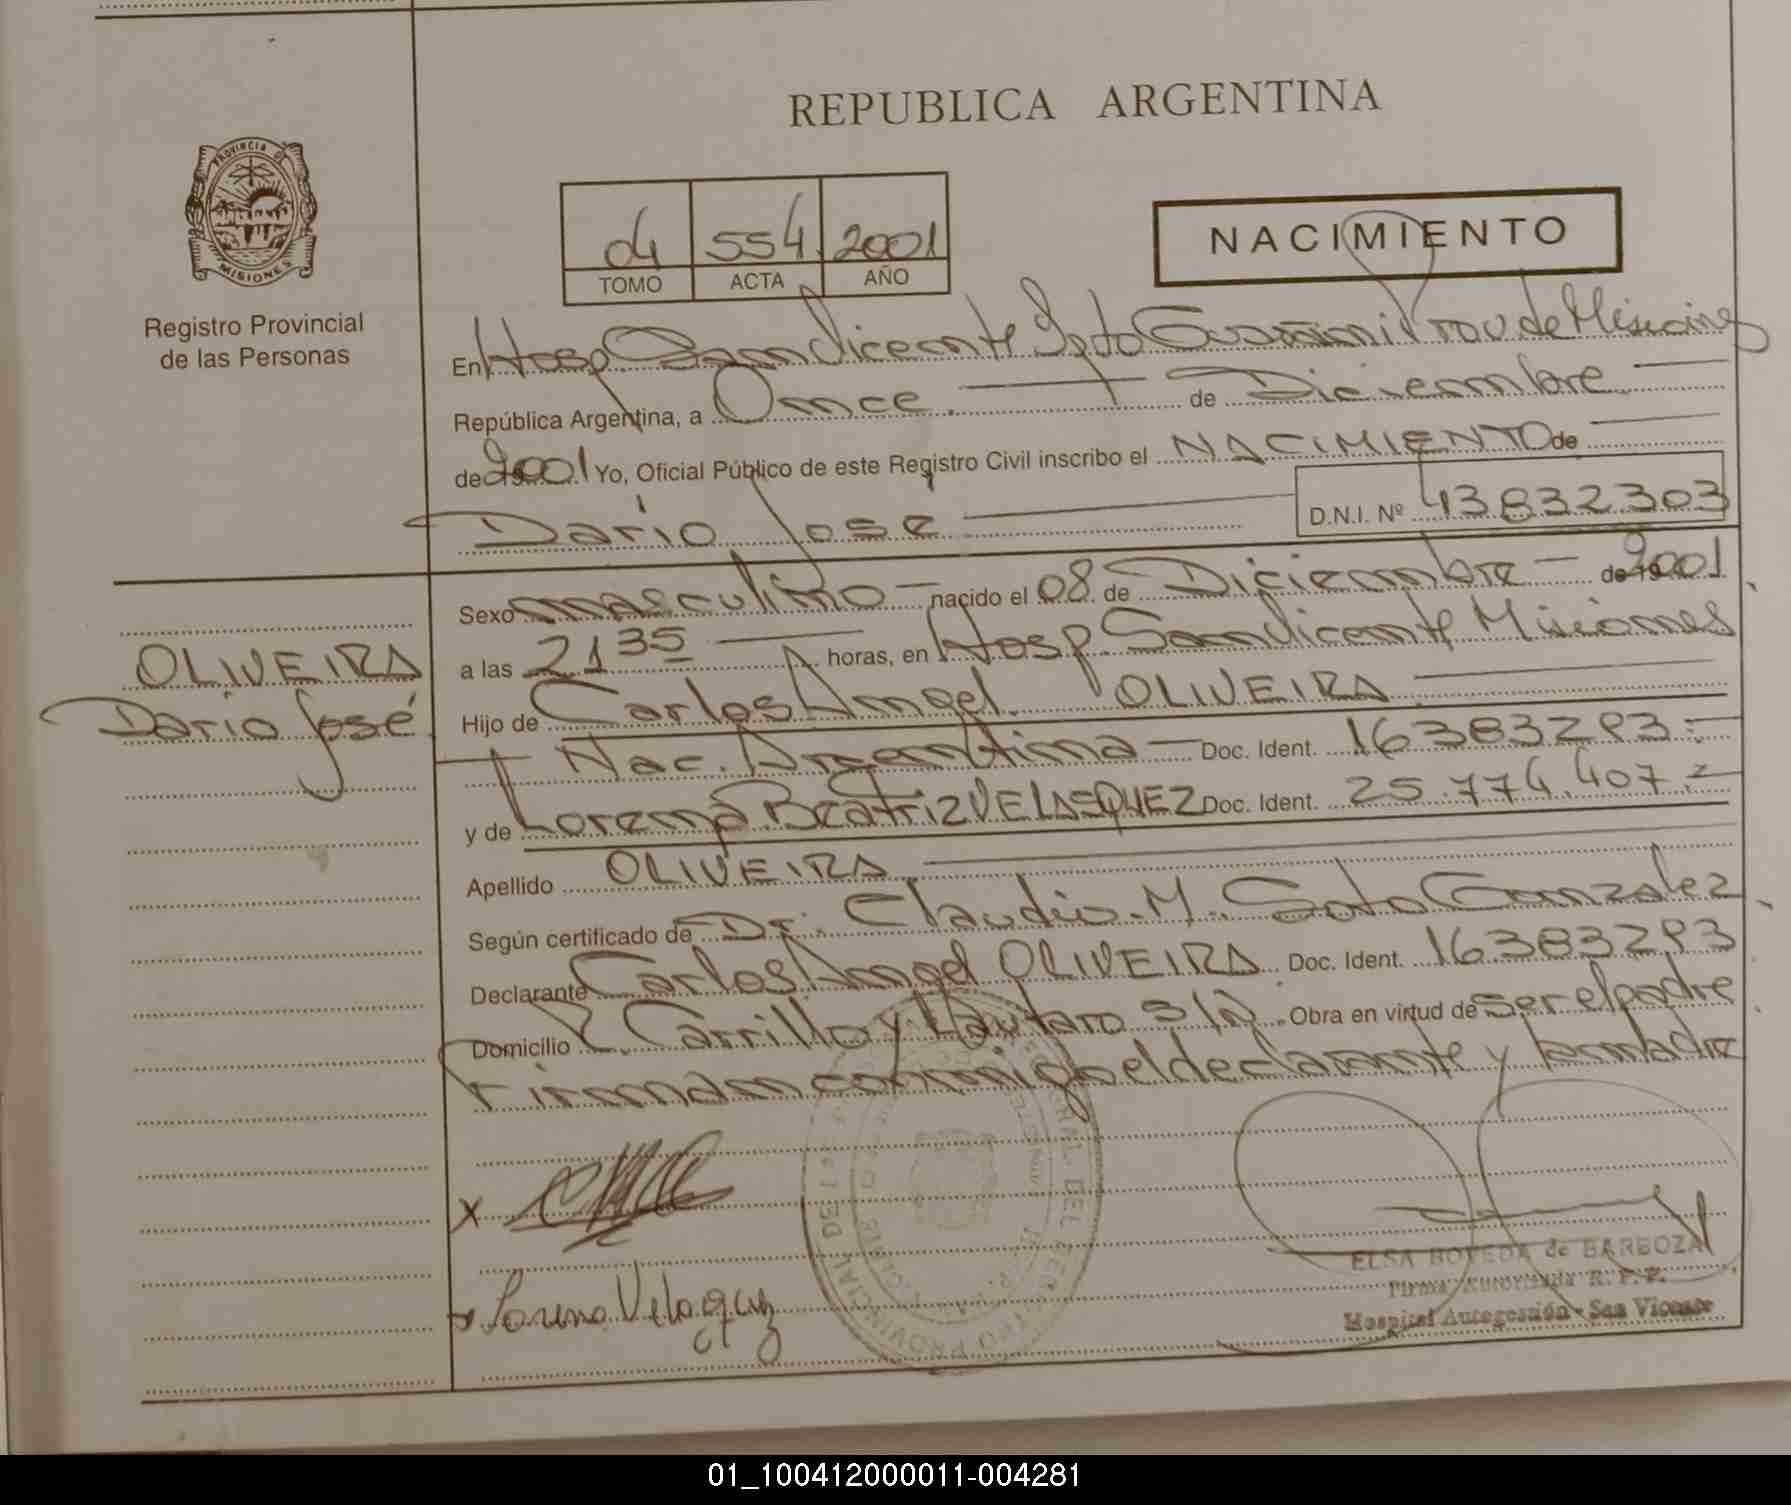 REPUBLICA ARGENTINA
PROVINCIA DE
MISIONES
Registro Provincial
de las Personas
04 554 2001
TOMO ACTA AÑO
NACIMIENTO
En Hosp. San Vicente Dpto Guaraní Prov de Misiones
República Argentina, a Once de Diciembre
de 2001 Yo, Oficial Público de este Registro Civil inscribo el NACIMIENTO de
Dario José D.N.I. Nº 43832303
Sexo masculino nacido el 08 de Diciembre de 2001
a las 21 35 horas, en Hosp. San Vicente Misiones
OLIVEIRA
Dario José
Hijo de Carlos Angel OLIVEIRA
Nac. Argentina Doc. Ident. 16383293
y de Lorena Beatriz VELASQUEZ Doc. Ident. 25.774.407
Apellido OLIVEIRA
Según certificado de Dr. Claudio M. Soto Gonzalez
Declarante Carlos Angel OLIVEIRA Doc. Ident. 16383293
Domicilio Carrillo y Lautaro S/N Obra en virtud de ser el padre
Firman conmigo el declarante y la madre
X
Lorena Velasquez
ELSA BOVEDA de BARBOZA
Firma Autorizada R. P. P.
Hospital Autogestión - San Vicente
01_100412000011-004281